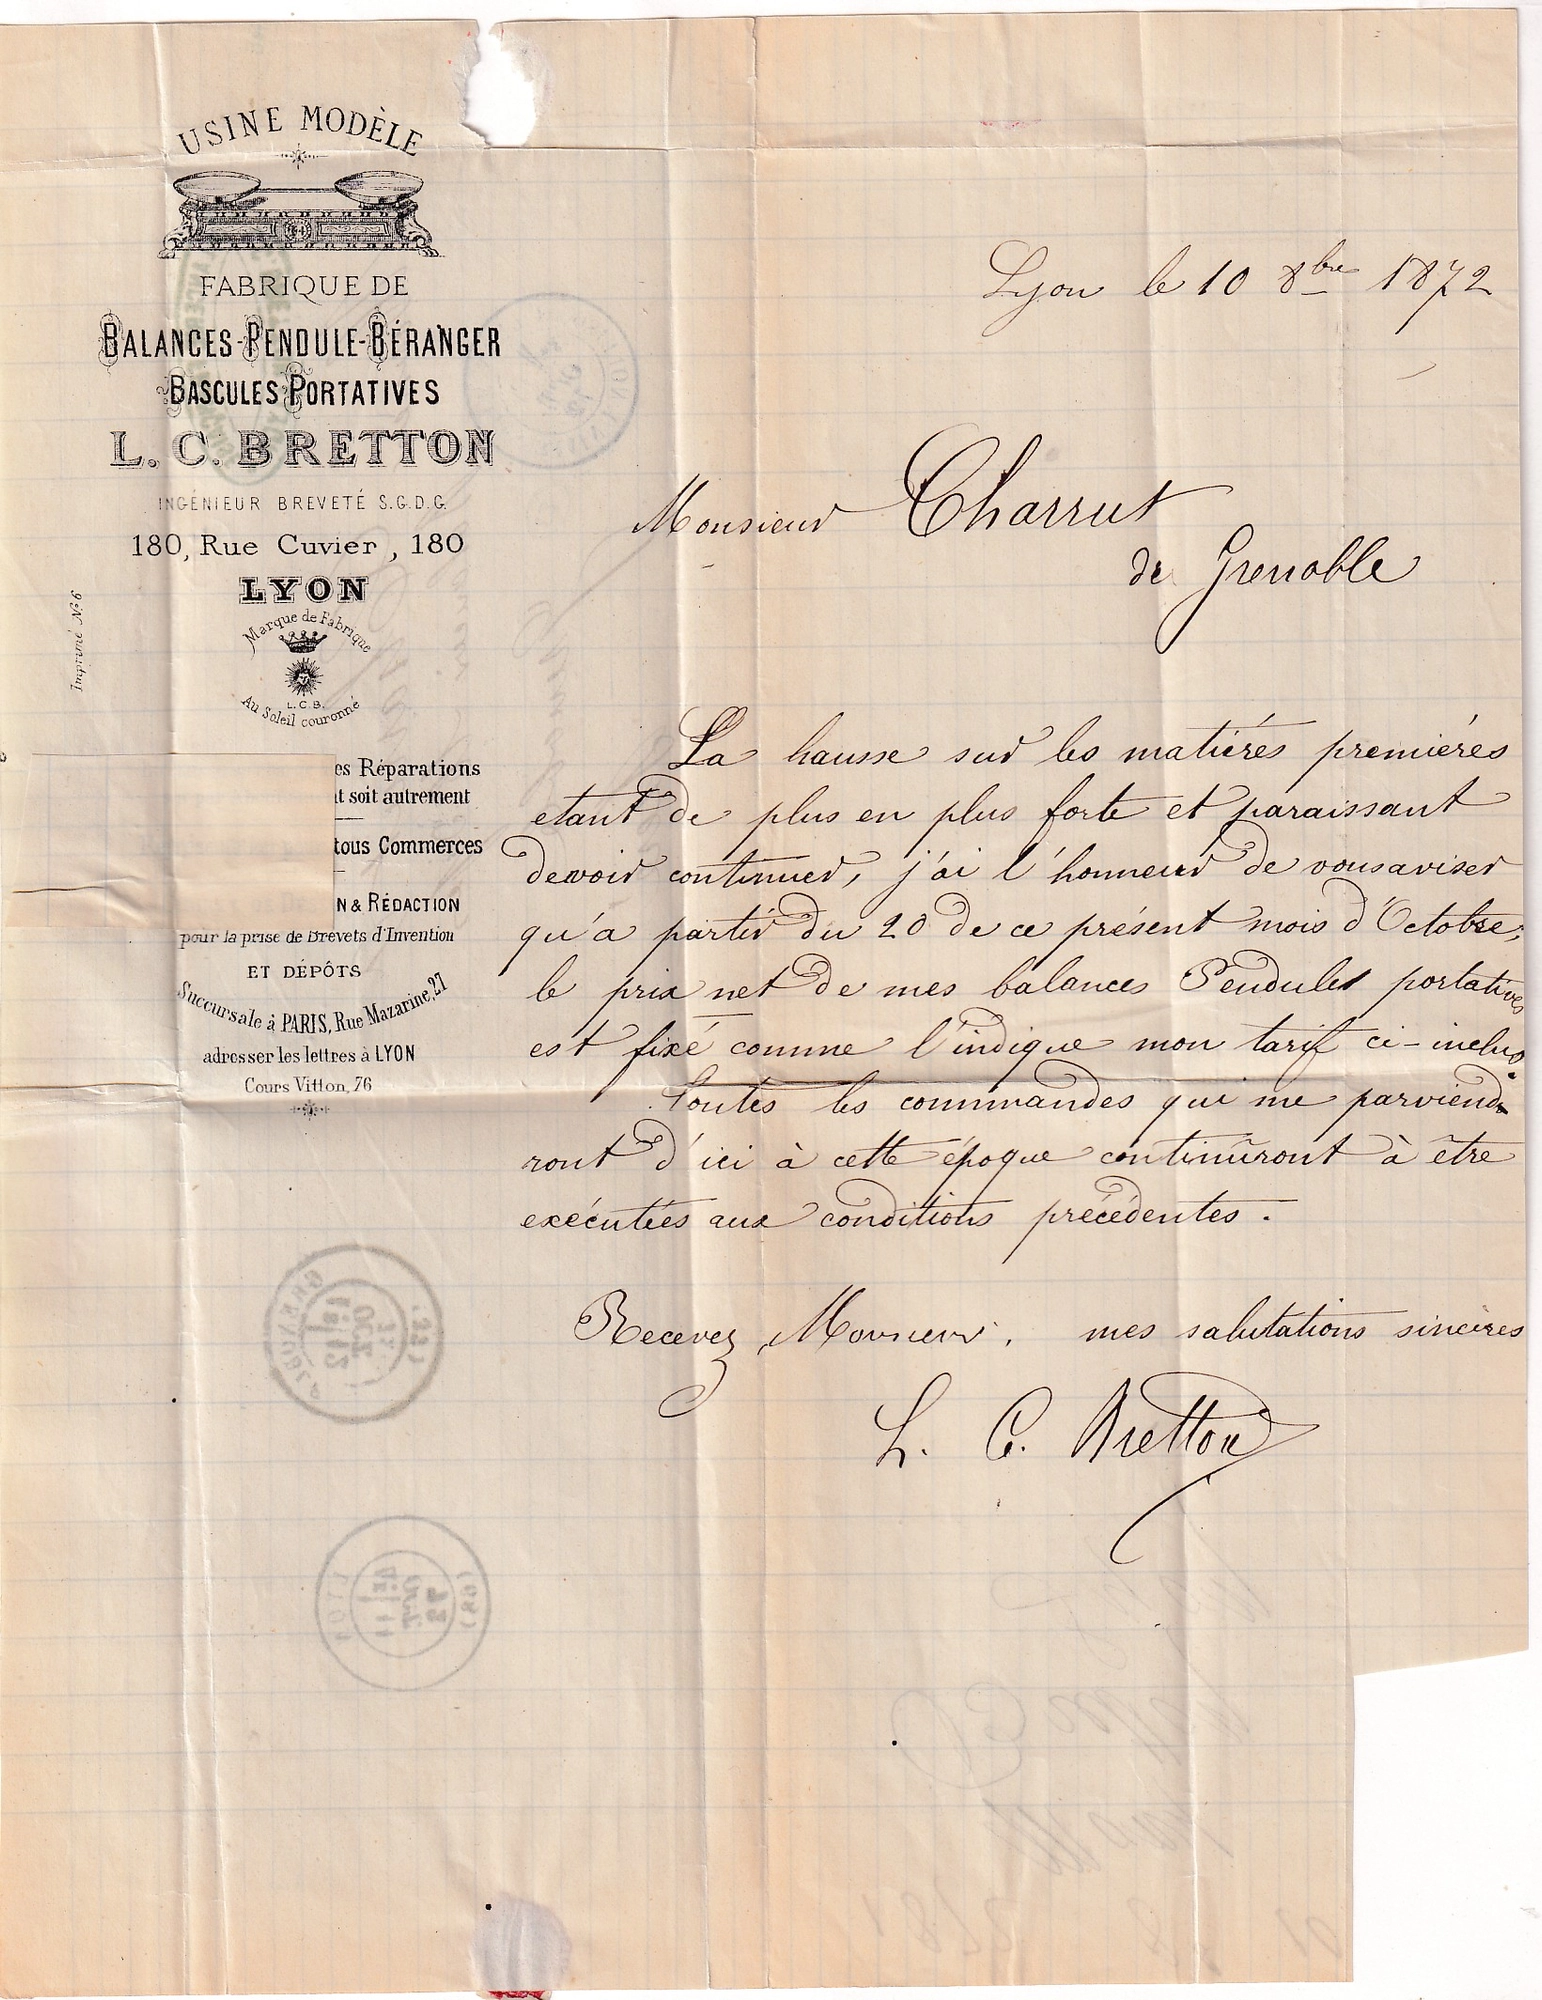 USINE MODÈLE
FABRIQUE DE
BALANCES-PENDULE-BÉRANGER
BASCULES PORTATIVES
L. C. BRETTON
INGÉNIEUR BREVETÉ S.G.D.G.
180, Rue Cuvier, 180
LYON
Marque de Fabrique
L.C.B.
Au Soleil couronné
Imprimé No 6
es Réparations
t soit autrement
tous Commerces
N & RÉDACTION
pour la prise de Brevets d'Invention
ET DÉPÔTS
Succursale à PARIS, Rue Mazarine, 27
adresser les lettres à LYON
Cours Vitton, 76
Lyon le 10 8bre 1872
Monsieur Charrut
de Grenoble
La hausse sur les matiéres premiéres
etant de plus en plus forte et paraissant
devoir continuer, j'ai l'honneur de vous aviser
qu'a partir du 20 de ce présent mois d'Octobre,
le prix net de mes balances Pendules portatives
est fixé comme l'indique mon tarif ci-inclus.
Toutes les commandes qui me parviend
ront d'ici à cette époque continûront à être
exécutées aux conditions précédentes.
Recevez, Monsieur, mes salutations sincères
L. C. Bretton
GRENOBLE
OCT.
LYON
OCT.